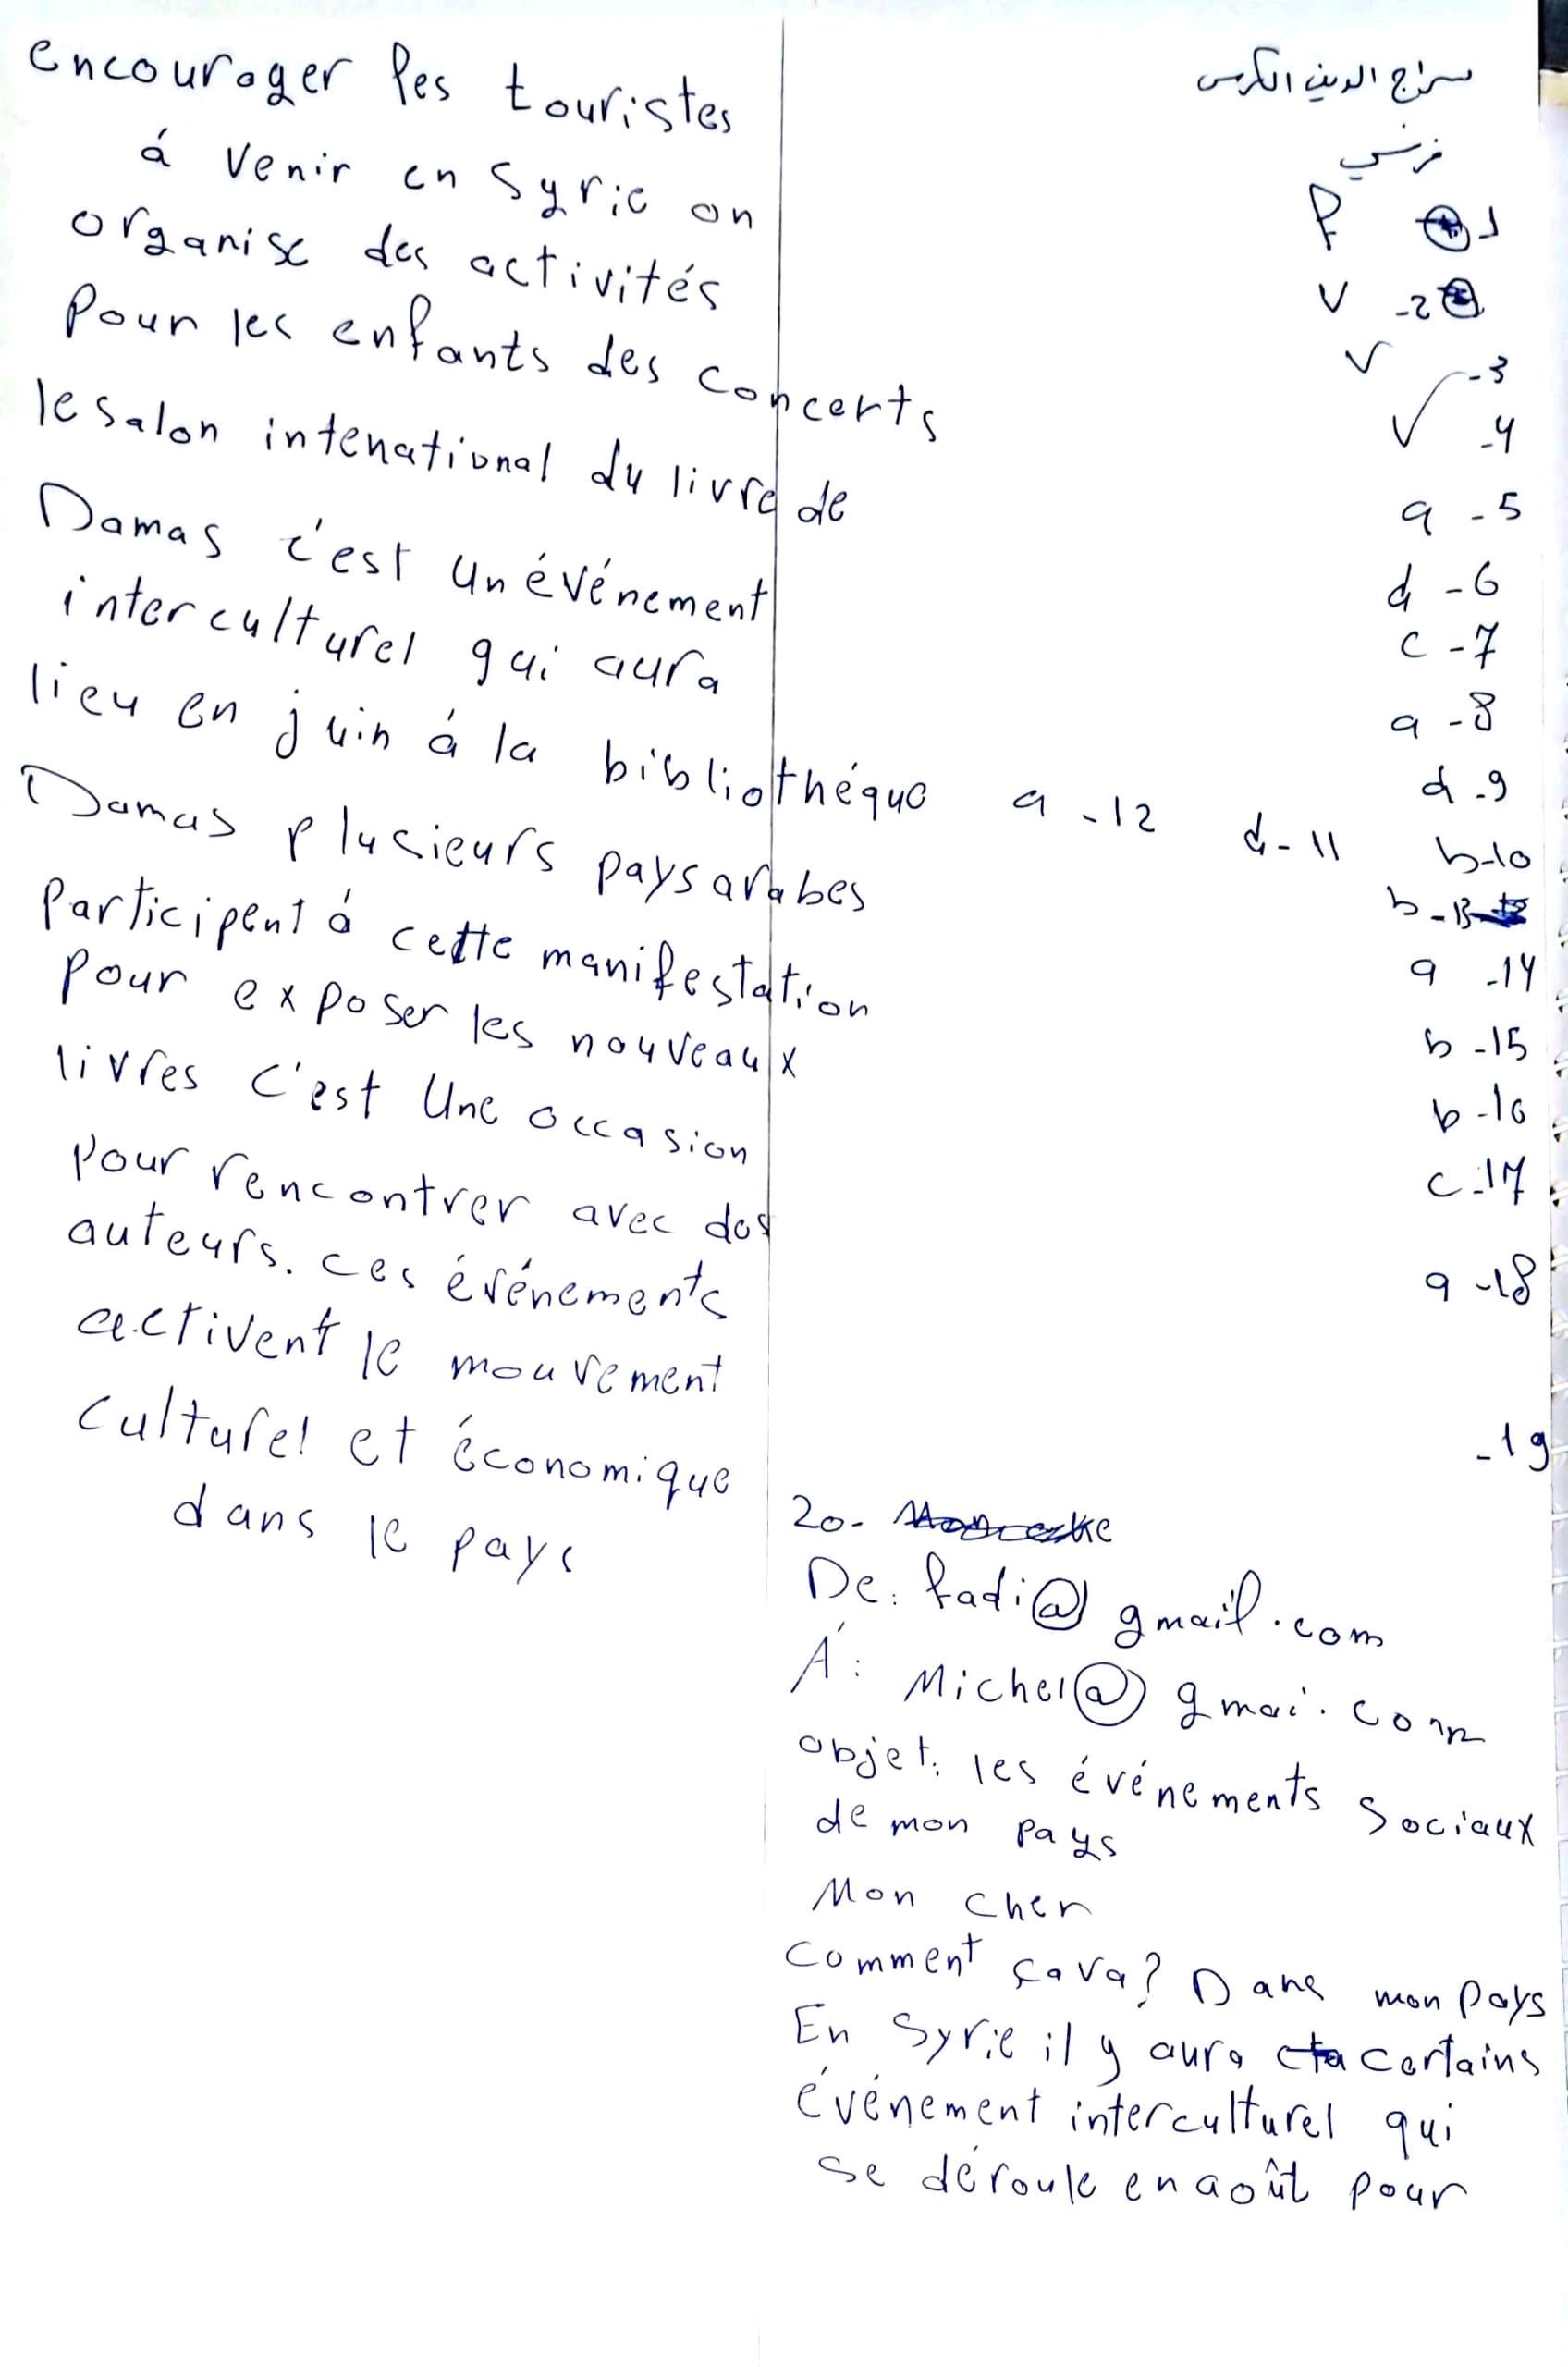 سراج الدين الكرسي
فرنسي
F -1
V -2
V -3
V -4
a -5
d -6
c -7
a -8
d -9
b-10
d-11
a -12
b -13
a -14
b -15
b -16
c -17
a -18
-19
20-
De: fadi@gmail.com
Á: Michel@gmai.com
objet: les événements sociaux
de mon pays
Mon cher
comment ça va? Dans mon pays
En Syrie il y aura certains
événement interculturel qui
se déroule en août pour
encourager les touristes
á venir en Syrie on
organise des activités
Pour les enfants des concerts
le salon intenational du livre de
Damas c'est un événement
interculturel qui aura
lieu en juin á la bibliothéque
Damas plusieurs pays arabes
Participent á cette manifestation
pour exposer les nouveaux
livres c'est Une occasion
pour rencontrer avec des
auteurs. ces événements
activent le mouvement
culturel et économique
dans le pays